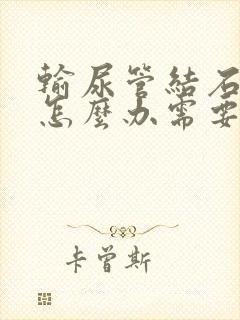 輸尿管結石
怎麼办需要
卡曾斯